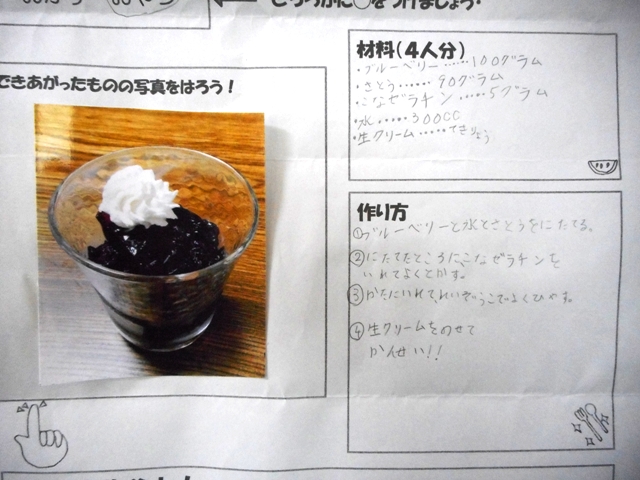 どちらかに○をつけましょう.
できあがったものの写真をはろう!
材料(4人分)
・ブルーベリー……100グラム
・さとう……90グラム
・こなゼラチン……5グラム
・水……300CC
・生クリーム……てきりょう
作り方
①ブルーベリーと水とさとうをにたてる。
②にたてたところにこなゼラチンを
いれてよくとかす。
③かたにいれてれいぞうこでよくひやす。
④生クリームをのせて
かんせい!!